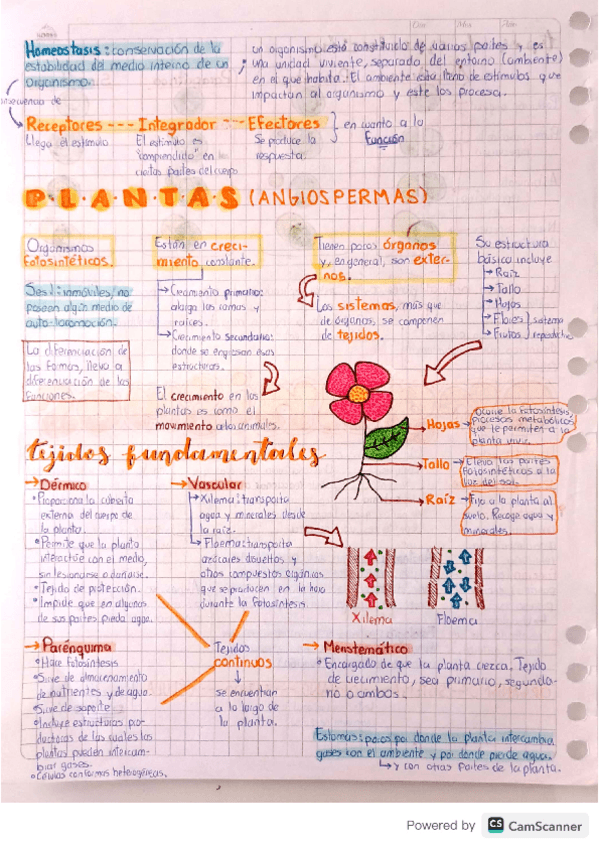 Homeostasis: conservación de la
estabilidad del medio interno de un
organismo.
un organismo está constituido de varias partes y es
una unidad viviente, separado del entorno (ambiente)
en el que habita. El ambiente está lleno de estímulos que
impactan al organismo y este los procesa.
Receptores --- Integrador --- Efectores
en cuanto a la
Función
Llega el estímulo
El estímulo es
"comprendido" en
ciertas partes del cuerpo
Se produce la
respuesta.
PLANTAS (ANGIOSPERMAS)
Organismos
fotosintéticos.
Sésil: inmóviles, no
poseen algún medio de
auto-locomoción.
La diferenciación de
las formas, lleva a
diferenciación de las
funciones.
Están en creci-
miento constante.
Crecimiento primario:
alarga las ramas y
raíces.
Crecimiento secundario:
donde se engrosan sus
estructuras.
El crecimiento en las
plantas es como el
movimiento a los animales.
Tienen pocos órganos
y, en general, son exter-
nos.
Los sistemas, más que
de órganos, se componen
de tejidos.
Su estructura
básica incluye
Raíz
Tallo
Hojas
Flores
Frutos
sistema
reproductivo
Hojas
Ocurre la fotosíntesis,
procesos metabólicos
que le permiten a la
planta vivir.
Tallo
Eleva las partes
fotosintéticas a la
luz del sol.
Raíz
Fija a la planta al
suelo. Recoge agua y
minerales.
tejidos fundamentales
Dérmico
Proporciona la cubierta
externa del cuerpo de
la planta.
Permite que la planta
interactúe con el medio,
sin lesionarse o dañarse.
Tejido de protección.
Impide que en algunas
de sus partes pueda agua.
Vascular
Xilema: transporta
agua y minerales desde
la raíz.
Floema: transporta
azúcares disueltos y
otros compuestos orgánicos
que se producen en la hoja
durante la fotosíntesis.
Xilema
Floema
Parénquima
Hace fotosíntesis
Sirve de almacenamiento
de nutrientes y de agua.
Sirve de soporte
Incluye estructuras pro-
ductoras de las cuales las
plantas pueden intercam-
biar gases.
Células con formas heterogéneas.
Tejidos
continuos
se encuentran
a lo largo de
la planta.
Meristemático
Encargado de que la planta crezca. Tejido
de crecimiento, sea primario, segunda-
rio o ambos.
Estomas: poros por donde la planta intercambia
gases con el ambiente y por donde pierde agua.
y con otras partes de la planta.
Powered by CS CamScanner